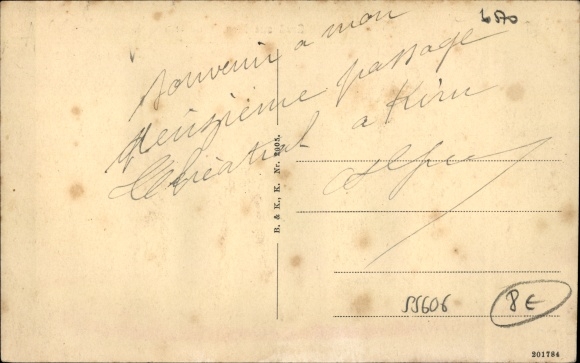 670
Souvenir a mon
deuxième passage
Théatral a Kirn
B. & K., K. Nr. 2905.
55606
8€
201784